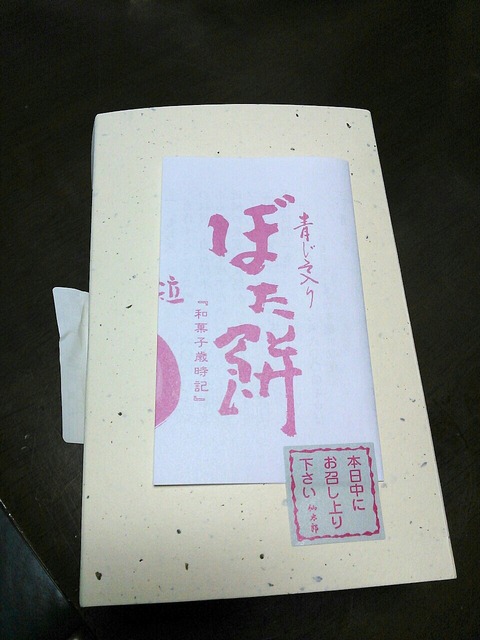 青じそ入り
ぼた餅
『和菓子歳時記』
泣
本日中に
お召し上り
下さい
仙太郎